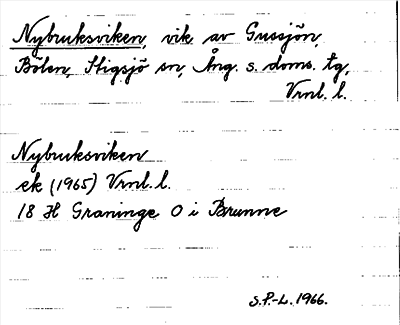 Nybruksviken, vik av Gussjön,
Bölen, Stigsjö sn, Ång. s. doms. tg,
Vrnl. l.
Nybruksviken
ek (1965) Vrnl. l.
18 H Graninge O i Brunne
S.P.-L. 1966.